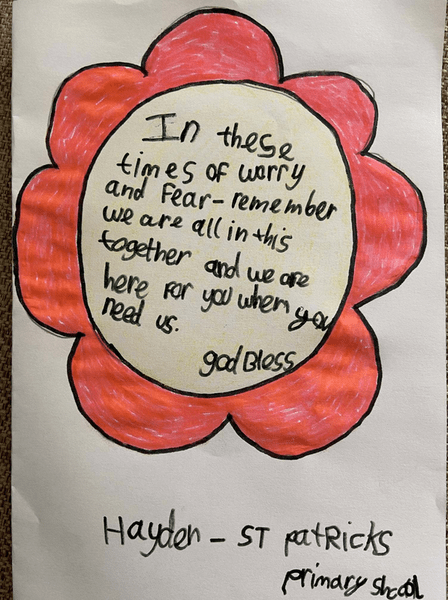 In these
times of worry
and Fear-remember
we are all in this
together and we are
here for you when you
need us.
god Bless
Hayden - ST patRicks
primary shcool